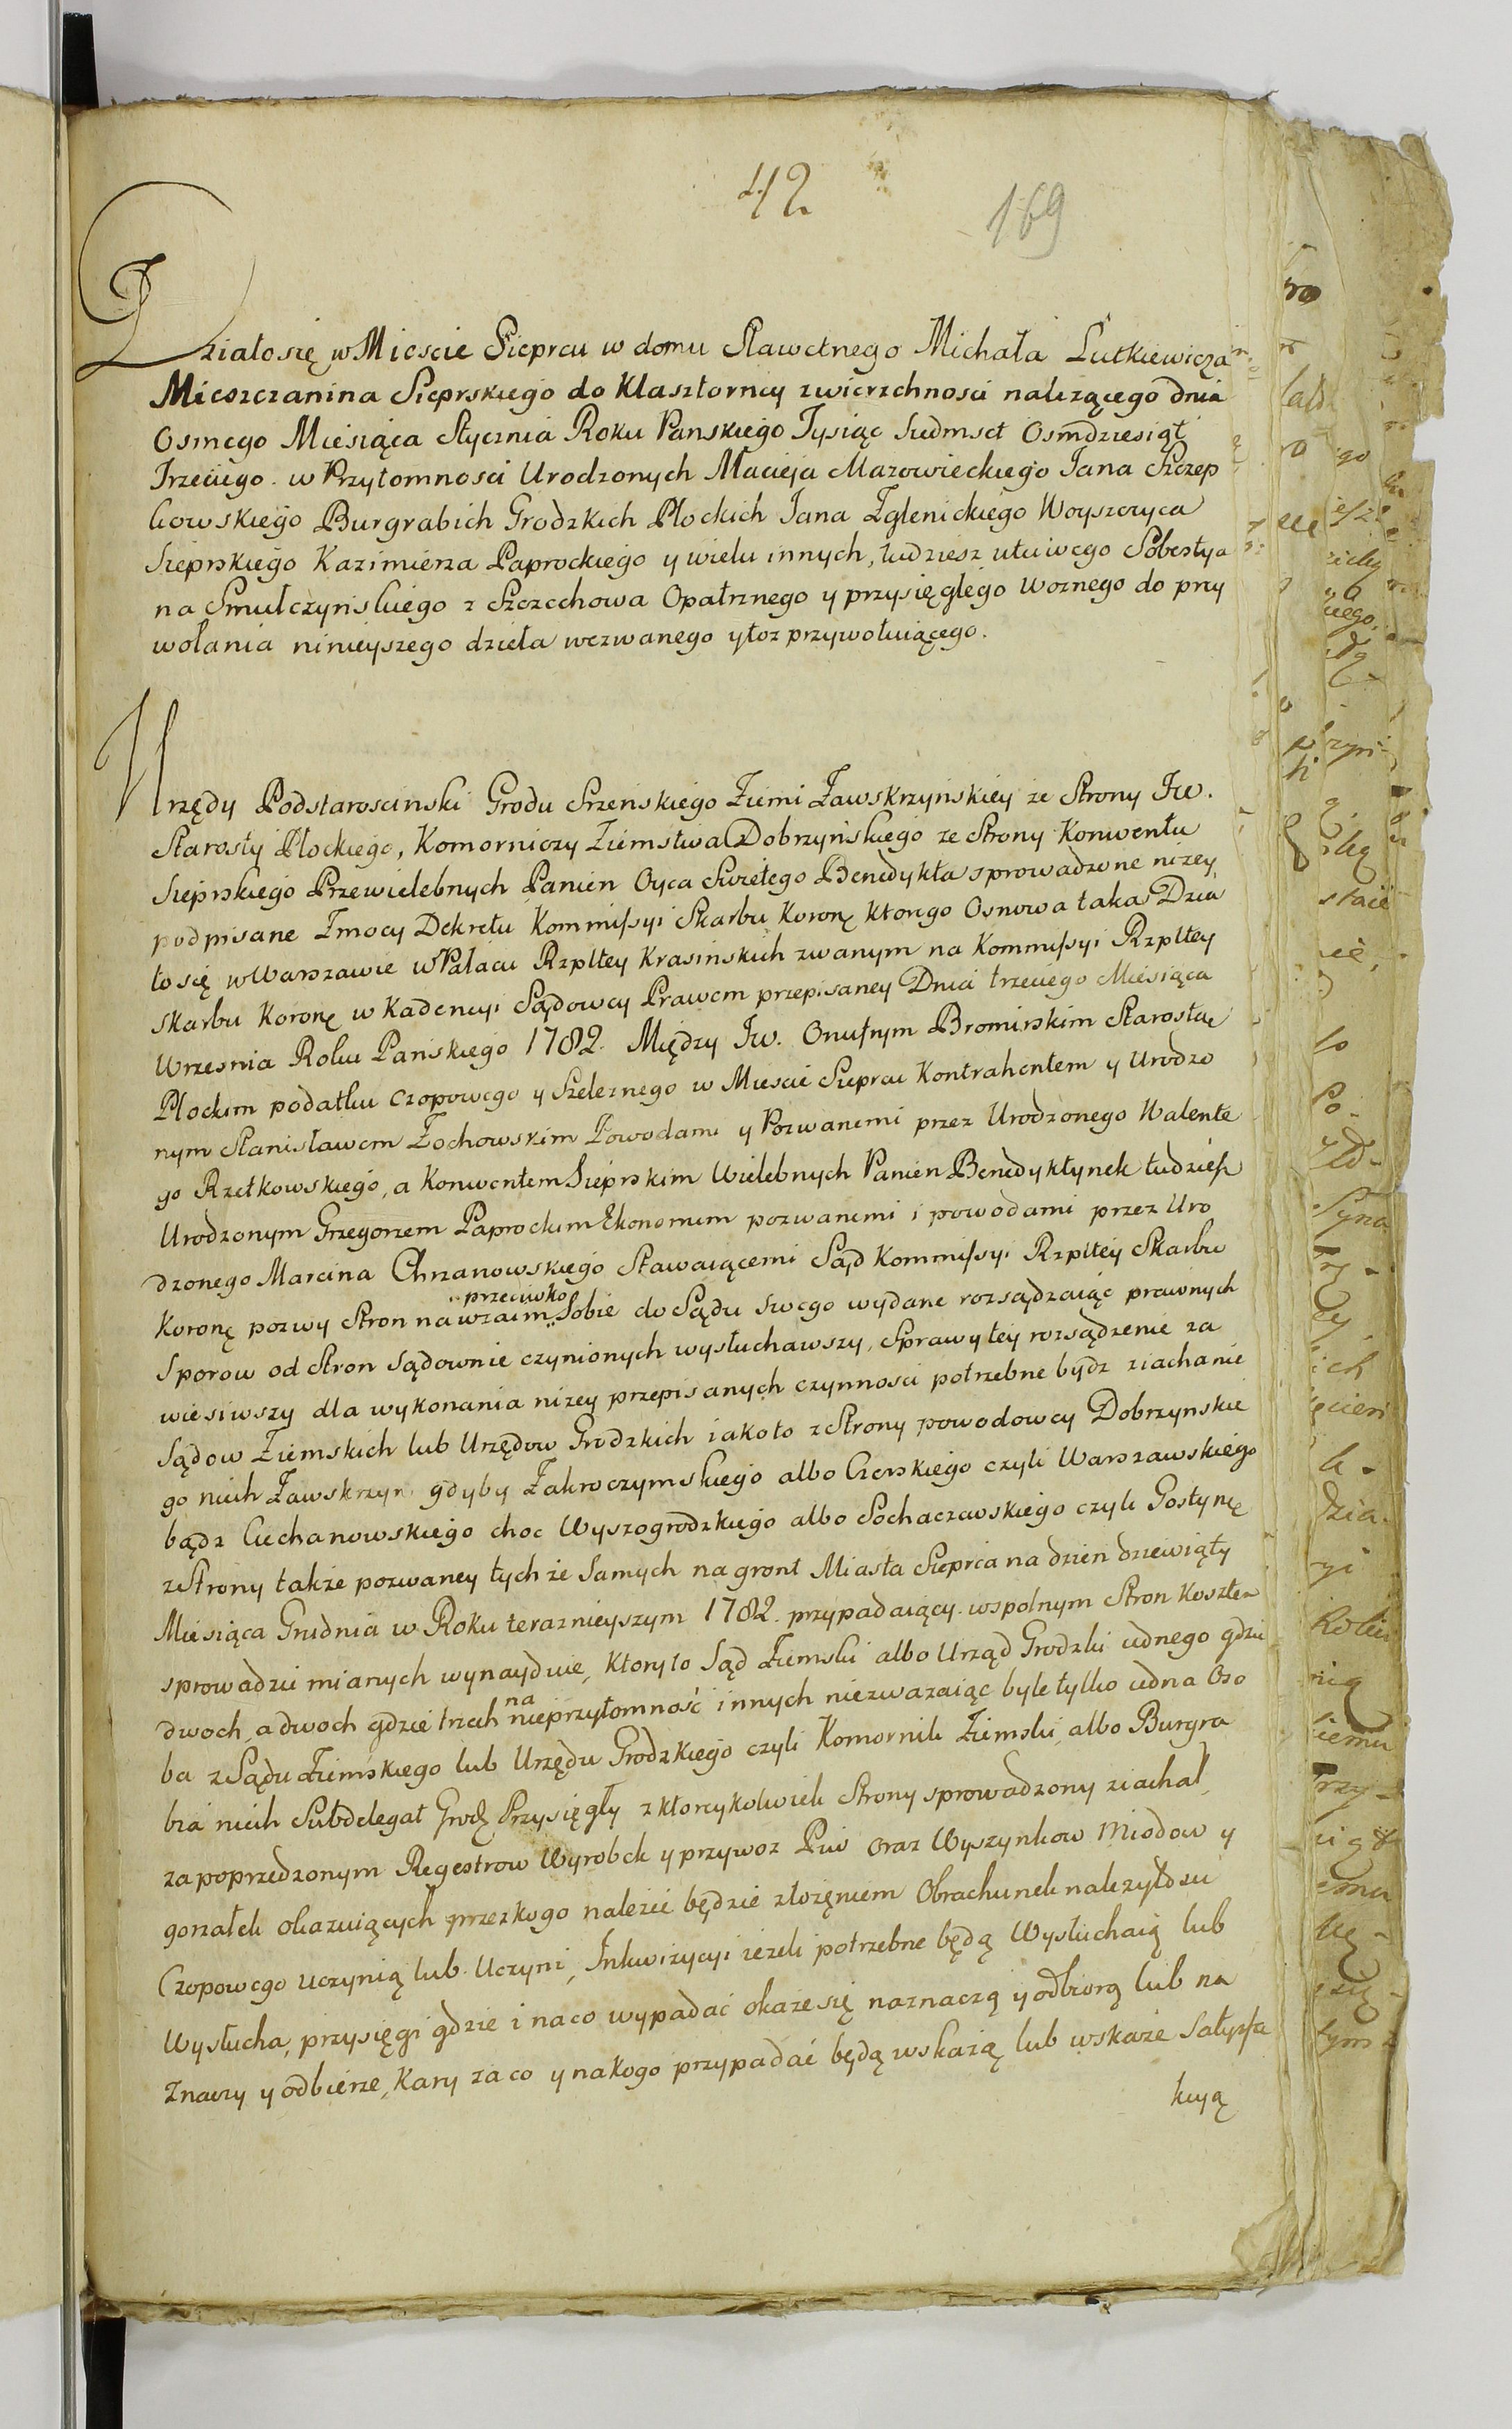 42
169
Działosię w Miescie Sieprcu w domu Sławetnego Michała Lutkiewicza
Mieszczanina Sieprskiego do Klasztorney zwierzchnosci nalezącego dnia
Osmego Miesiąca Stycznia Roku Panskiego Tysiąc Siedmset Osmdziesiąt
Trzeciego. w Przytomnosci Urodzonych Macieja Mazowieckiego Jana Szczep
kowskiego Burgrabich Grodzkich Płockich Jana Zglenickiego Woyszczyca
Sieprskiego Kazimierza Paprockiego y wielu innych, tudziesz utciwego Sobestya
na Smulczynskiego z Szczechowa Opatrznego y przysięgłego Woznego do przy
wołania ninieyszego dzieła wezwanego ytoz przywołuiącego.
Urzędy Podstaroscinski Grodu Srzenskiego Ziemi Zawskrzynskiey ze Strony Jw.
Starosty Płockiego, Komorniczy Ziemstwa Dobrzyńskiego ze Strony Konwentu
Sieprskiego Przewielebnych Panien Oyca Swietego Benedykta sprowadzone nizey
podpisane Zmocy Dekretu Kommissyi Skarbu Koronę Ktorego Osnowa taka Dzia
łosię w Warszawie w Pałacu Rzpltey Krasinskich zwanym na Kommissyi Rzpltey
Skarbu Koronę w Kadencyi Sądowey Prawem przepisaney Dnia trzeciego Miesiąca
Wrzesnia Roku Panskiego 1782. Między Jw. Onufrym Bromirskim Starostą
Płockim podatku Czopowego y Szelęznego w Miescie Sieprcu Kontrahentem y Urodzo
nym Stanisławem Zochowskim Powodami y Pozwanemi przez Urodzonego Walente
go Rzetkowskiego, a Konwentem Sieprskim Wielebnych Panien Benedyktynek tudziesz
Urodzonym Grzegorzem Paprockim Ekonomem pozwanemi i powodami przez Uro
dzonego Marcina Chrzanowskiego Stawaiącemi Sąd Kommissyi Rzpltey Skarbu
Koronę pozwy Stron nawzaim przeciwko Sobie do Sądu swego wydane rozsądzaiąc prawnych
Sporow od Stron Sądownie czynionych wysłuchawszy, Sprawy tey rozsądzenie za
wiesiwszy dla wykonania nizey przepisanych czynnosci potrzebne bydz ziachanie
Sądow Ziemskich lub Urzędow Grodzkich iakoto z Strony powodowey Dobrzynskie
go niech Zawskrzyn gdyby Zakroczymskiego albo Czerskiego czyli Warszawskiego
bądz Ciechanowskiego choc Wyszogrodzkiego albo Sochaczewskiego czyli Gostynię
z Strony także pozwaney tych że Samych na gront Miasta Sieprca na dzien dziewiąty
Miesiąca Grudnia w Roku teraznieyszym 1782. przypadaiący. wspolnym Stron Kosztem
sprowadzic mianych wynayduie, Ktory to Sąd Ziemski albo Urząd Grodzki iednego gdzie
dwoch, a dwoch gdzie trzech na nieprzytomność innych niezwazaiąc byle tylko iedna Oso
ba z Sądu Ziemskiego lub Urzędu Grodzkiego czyli Komornik Ziemski, albo Burgra
bia niech Subdelegat Grodz Przysięgły z ktoreykolwiek Strony sprowadzony ziachał,
za poprzedzonym Regestrow Wyrobek y przywoz Piw oraz Wyszynkow Miodow y
gorzałek okazuiących przezkogo nalezić będzie złożęniem Obrachunek nalezytosci
Czopowego uczynią lub Uczyni, Inkwizycyi iezeli potrzebne będą Wysłuchaią lub
Wysłucha, przysięgi gdzie i naco wypadać okaze się naznaczą y odbiorą lub na
Znaczy y odbierze, Kary za co y nakogo przypadać będą wskażą lub wskaże Satysfa
kcyą